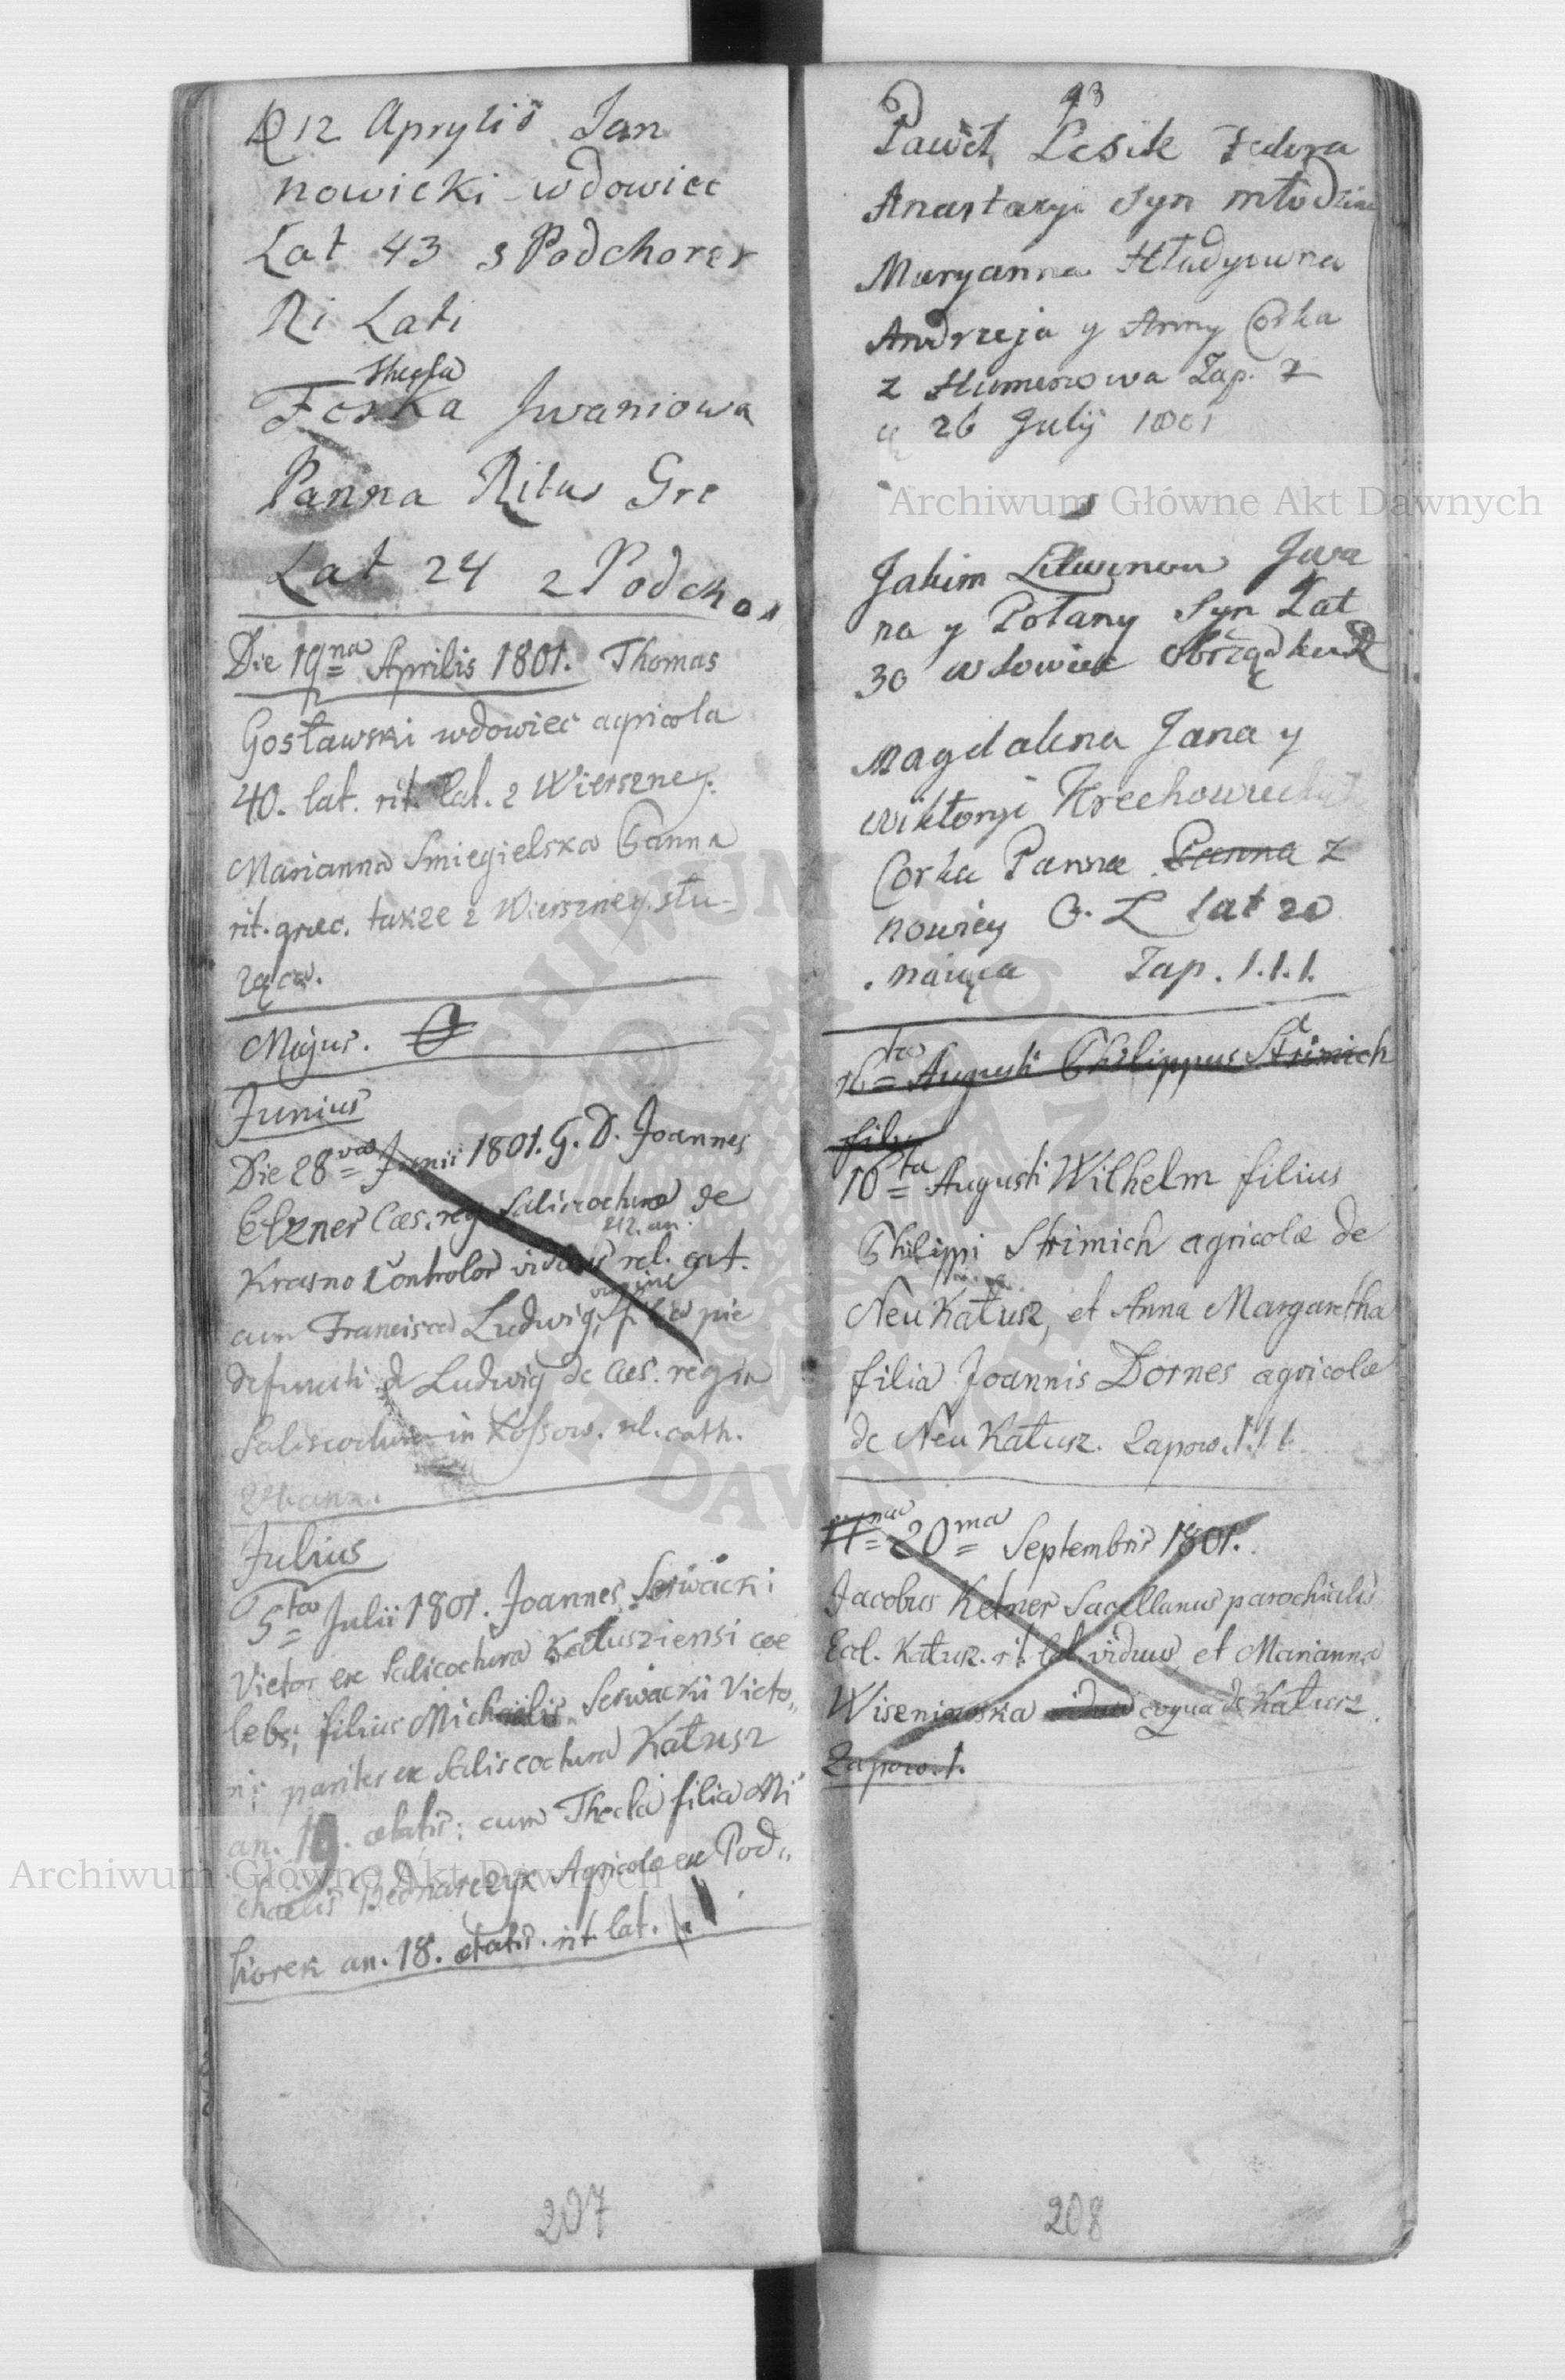 D 12 Aprylis Jan
nowicki wdowiec
Lat 43 s Podchorek
Ri Lati
Thecla
Foska Jwaniowa
Panna Ritus Gre
Lat 24 z Podchor
Die 19na Aprilis 1801. Thomas
Gosławski wdowiec agricola
40. lat. rit. lat. z Wierszney.
Marianna Smiegielska Panna
rit. graec. także z Wierszney słu-
żąca.
Majus. O
Junius
Die 28va Junii 1801. G. D. Joannes
Elzner Caes. reg. Saliscoctura de
42. an.
Krasno Controlor viduus rel. cat.
virgine
cum Francisca Ludwig, filia pie
defuncti de Ludwig de Caes. regia
Saliscoctura in Kossow. rel. cath.
ann.
Julius
5ta Julii 1801. Joannes Serwacki
Vietor ex Salicoctura Katusziensi coe
lebs, filius Michaëlis Serwacki Victo„
ri; pariter ex Saliscoctura Kałusz
an. 19. aetatis; cum Thecla filia Mi
chaelis Bednarczyk Agricolae ex Pod„
horek an. 18. aetatis. rit. lat.
207
93
Paweł Lesik Fedora
Anastazyi Syn młodzian
Maryanna Hładyowna
Andrzeja y Anny Corka
z Humenowa Zap. Z
d 26 Julij 1801
Jakim Litwinow Jwa
na y Polany Syn Lat
30 wdowiec obrządku R
Magdalena Jana y
Wiktoryi Krechowieckych
Corka Panna Panna z
nowicy O. L lat 20
Zap. 1.1.1.
16ta Augusti Philippus Strimich
filius
16ta Augusti Wilhelm filius
Philippi Strimich agricolae de
Neu Kałusz, et Anna Margaretha
filia Joannis Dornes agricolae
de Neu Kałusz. Zapow. 1.1.1.
20ma Septembris 1801.
Jacobus Kelner Sacellanus parochialis
Ecl. Kałusz. rit. lat. viduus et Marianna
Wiszniowska vidua coqua de Kałusz
Zapow. 1.
208
Archiwum Główne Akt Dawnych
Archiwum Główne Akt Dawnych